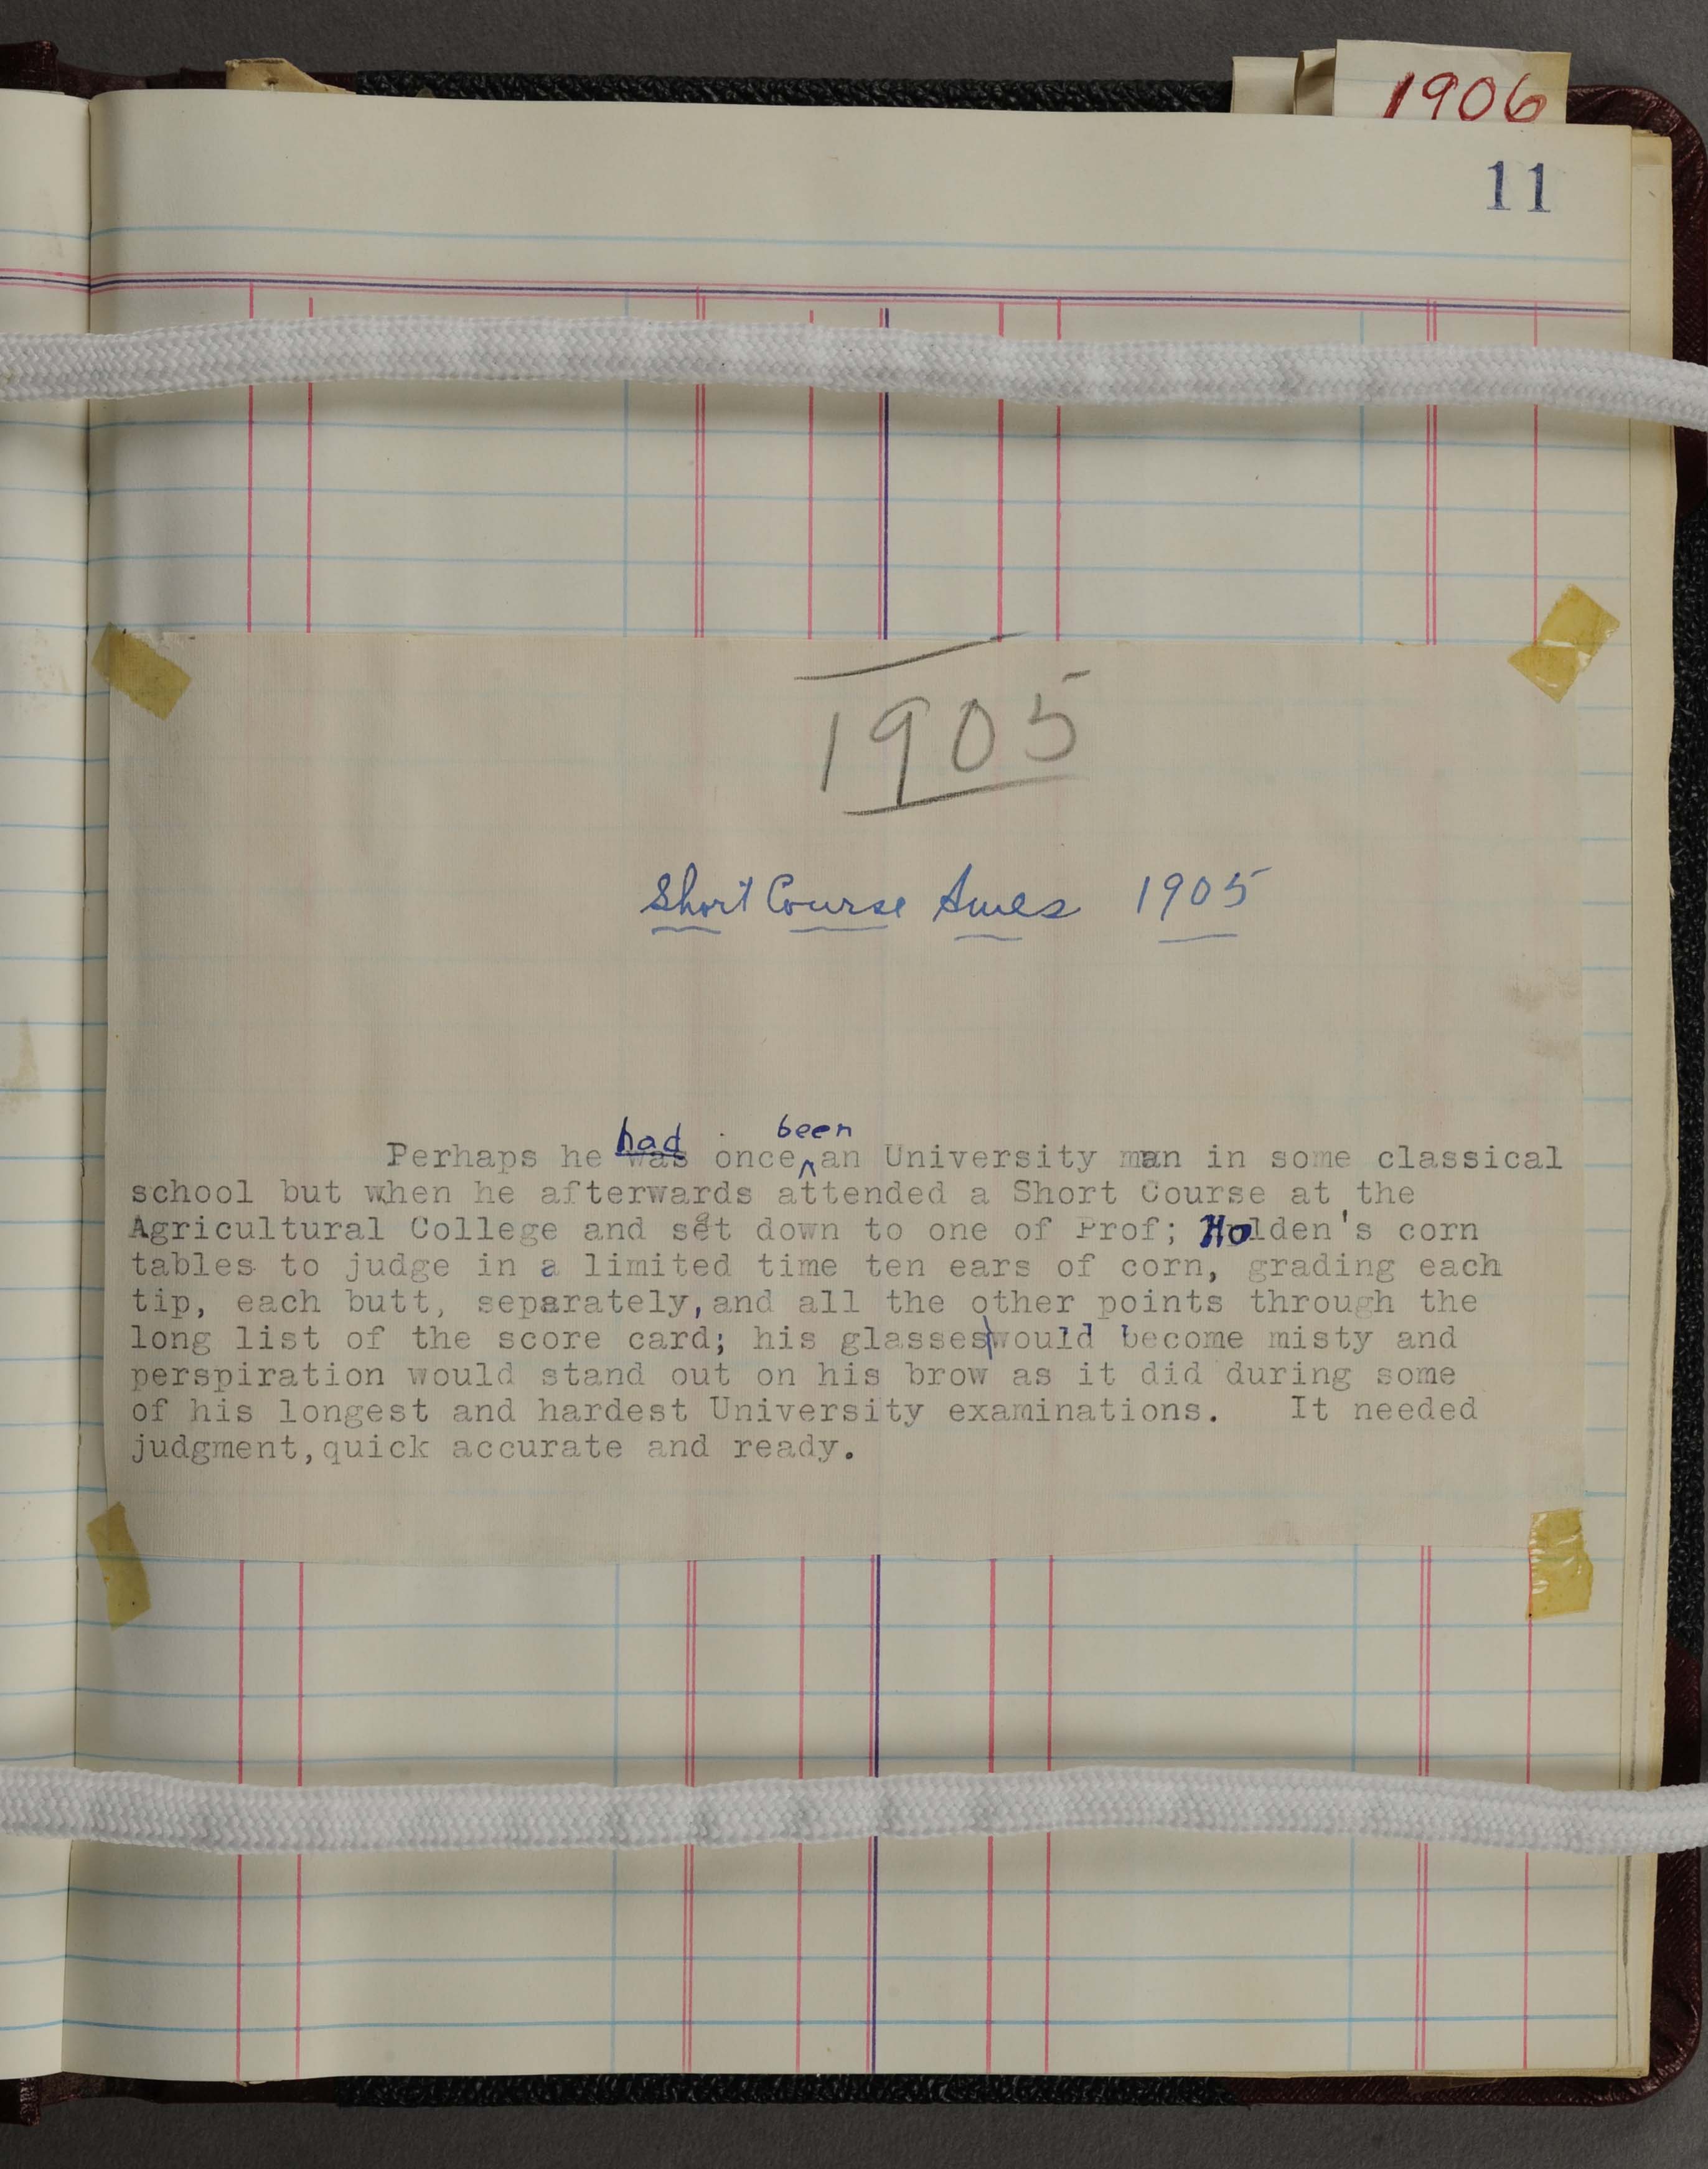 1906
11
1905
Short Course Ames 1905
had been
Perhaps he was once ^ an University man in some classical
school but when he afterwards attended a Short Course at the
Agricultural College and sat down to one of Prof; Holden's corn
tables to judge in a limited time ten ears of corn, grading each
tip, each butt, separately, and all the other points through the
long list of the score card; his glasses would become misty and
perspiration would stand out on his brow as it did during some
of his longest and hardest University examinations. It needed
judgment, quick accurate and ready.